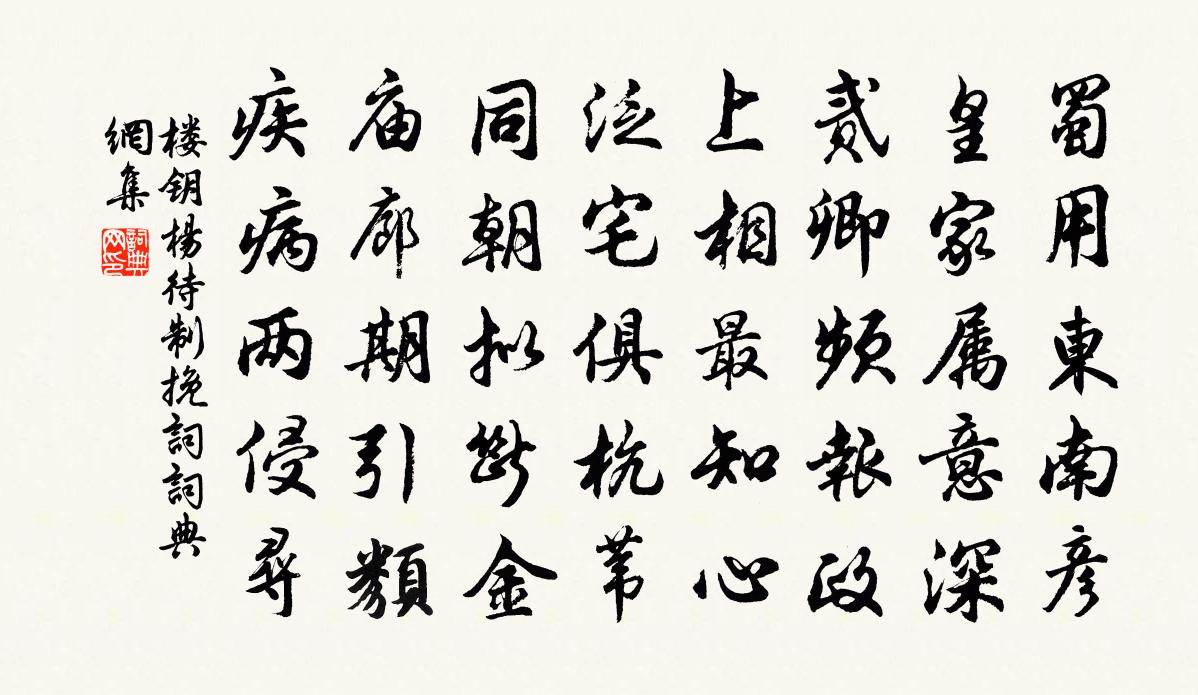 蜀用東南彦
皇家属意深
贰卿频報政
上相最知心
泛宅俱杭苇
同朝拟斷金
庙廊期引類
疾病两侵尋
楼钥杨待制挽詞詞典
網集
詞典網印